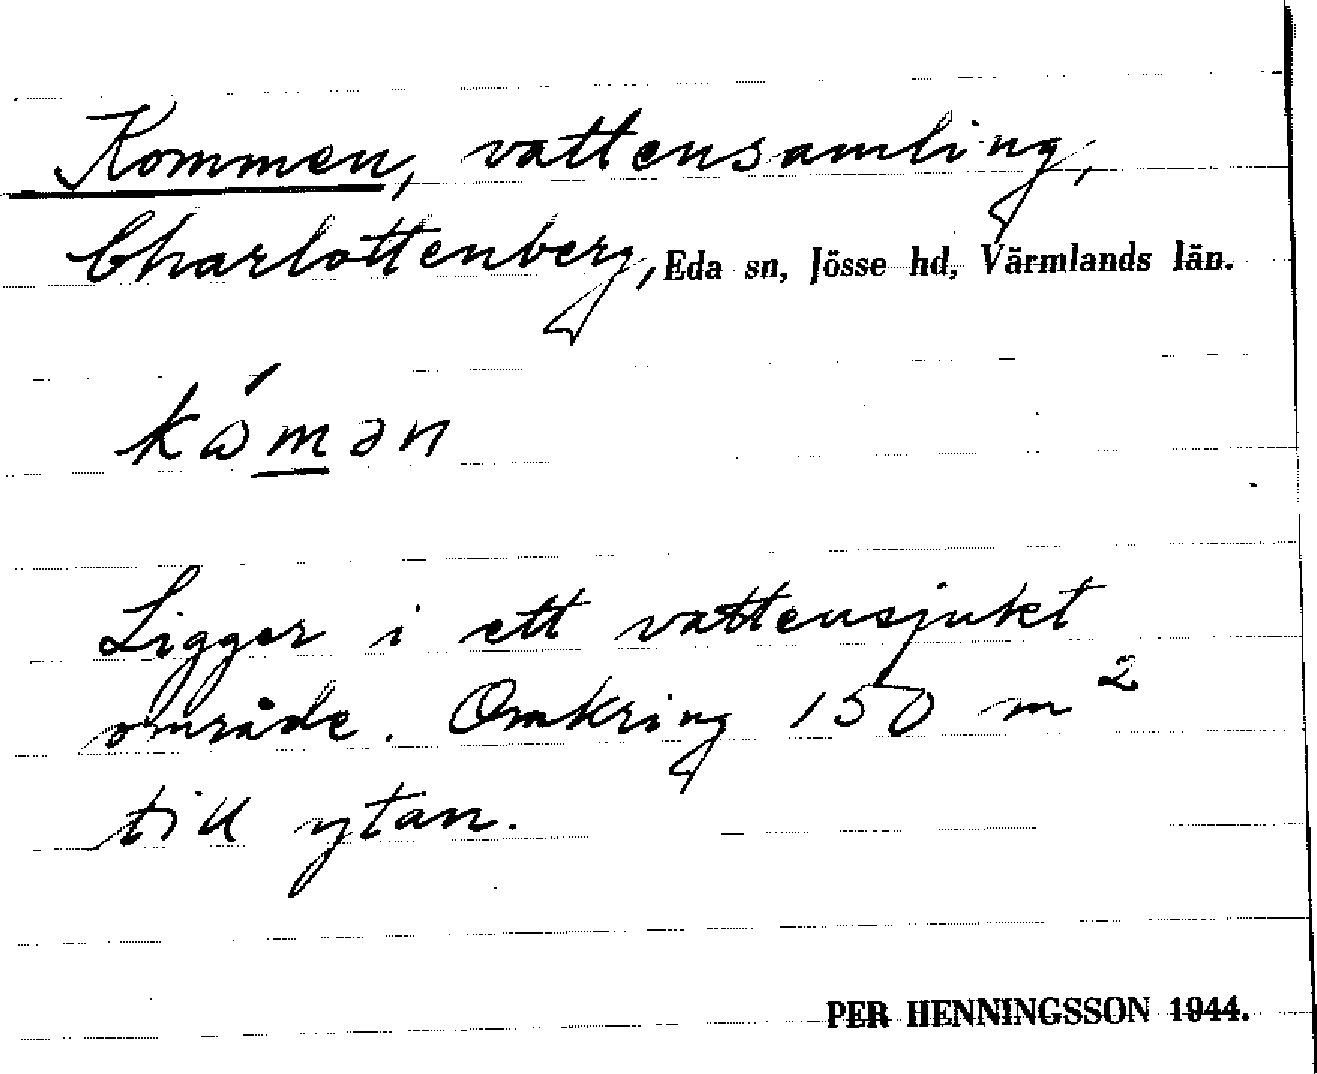 Kommen, vattensamling,
Charlottenberg, Eda sn, Jösse hd, Värmlands län.
kómən
Ligger i ett vattensjukt
område. Omkring 150 m²
till ytan.
PER HENNINGSSON 1944.